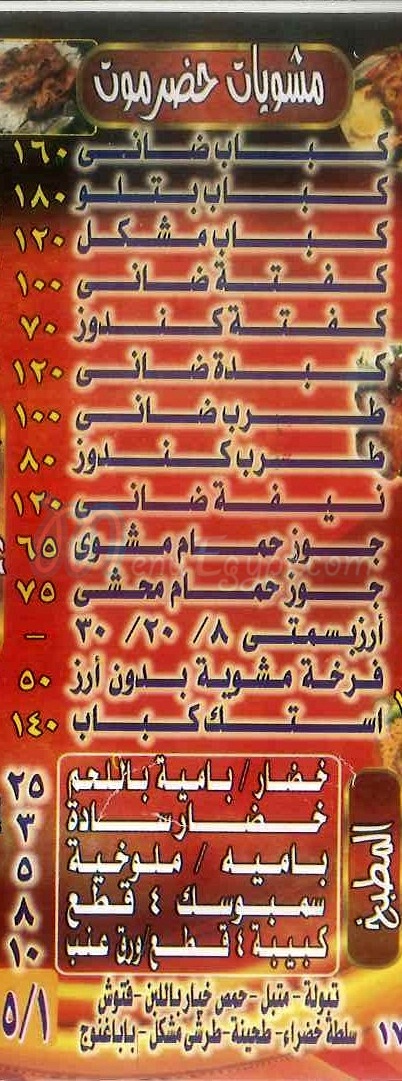 مشويات حضرموت
كباب ضانى ١٦٠
كباب بتلو ١٨٠
كباب مشكل ١٢٠
كفتة ضانى ١٠٠
كفتة كندوز ٧٠
كبدة ضانى ١٢٠
طرب ضانى ١٠٠
طرب كندوز ٨٠
نيفة ضانى ١٢٠
جوز حمام مشوى ٦٥
جوز حمام محشى ٧٥
أرز بسمتى ٨/ ٢٠/ ٣٠ –
فرخة مشوية بدون أرز ٥٠
استك كباب ١٤٠
المطبخ
خضار / بامية باللحم ٢٥
خضار سادة ٣
باميه / ملوخية ٥
سمبوسك ٤ قطع ٨
كبيبة ٤ قطع/ورق عنب ١٠
تبولة - متبل - حمص خيار باللبن - فتوش
سلطة خضراء - طحينة - طرشى مشكل - باباغنوج ٥/١
١٧
MenuEgypt.com